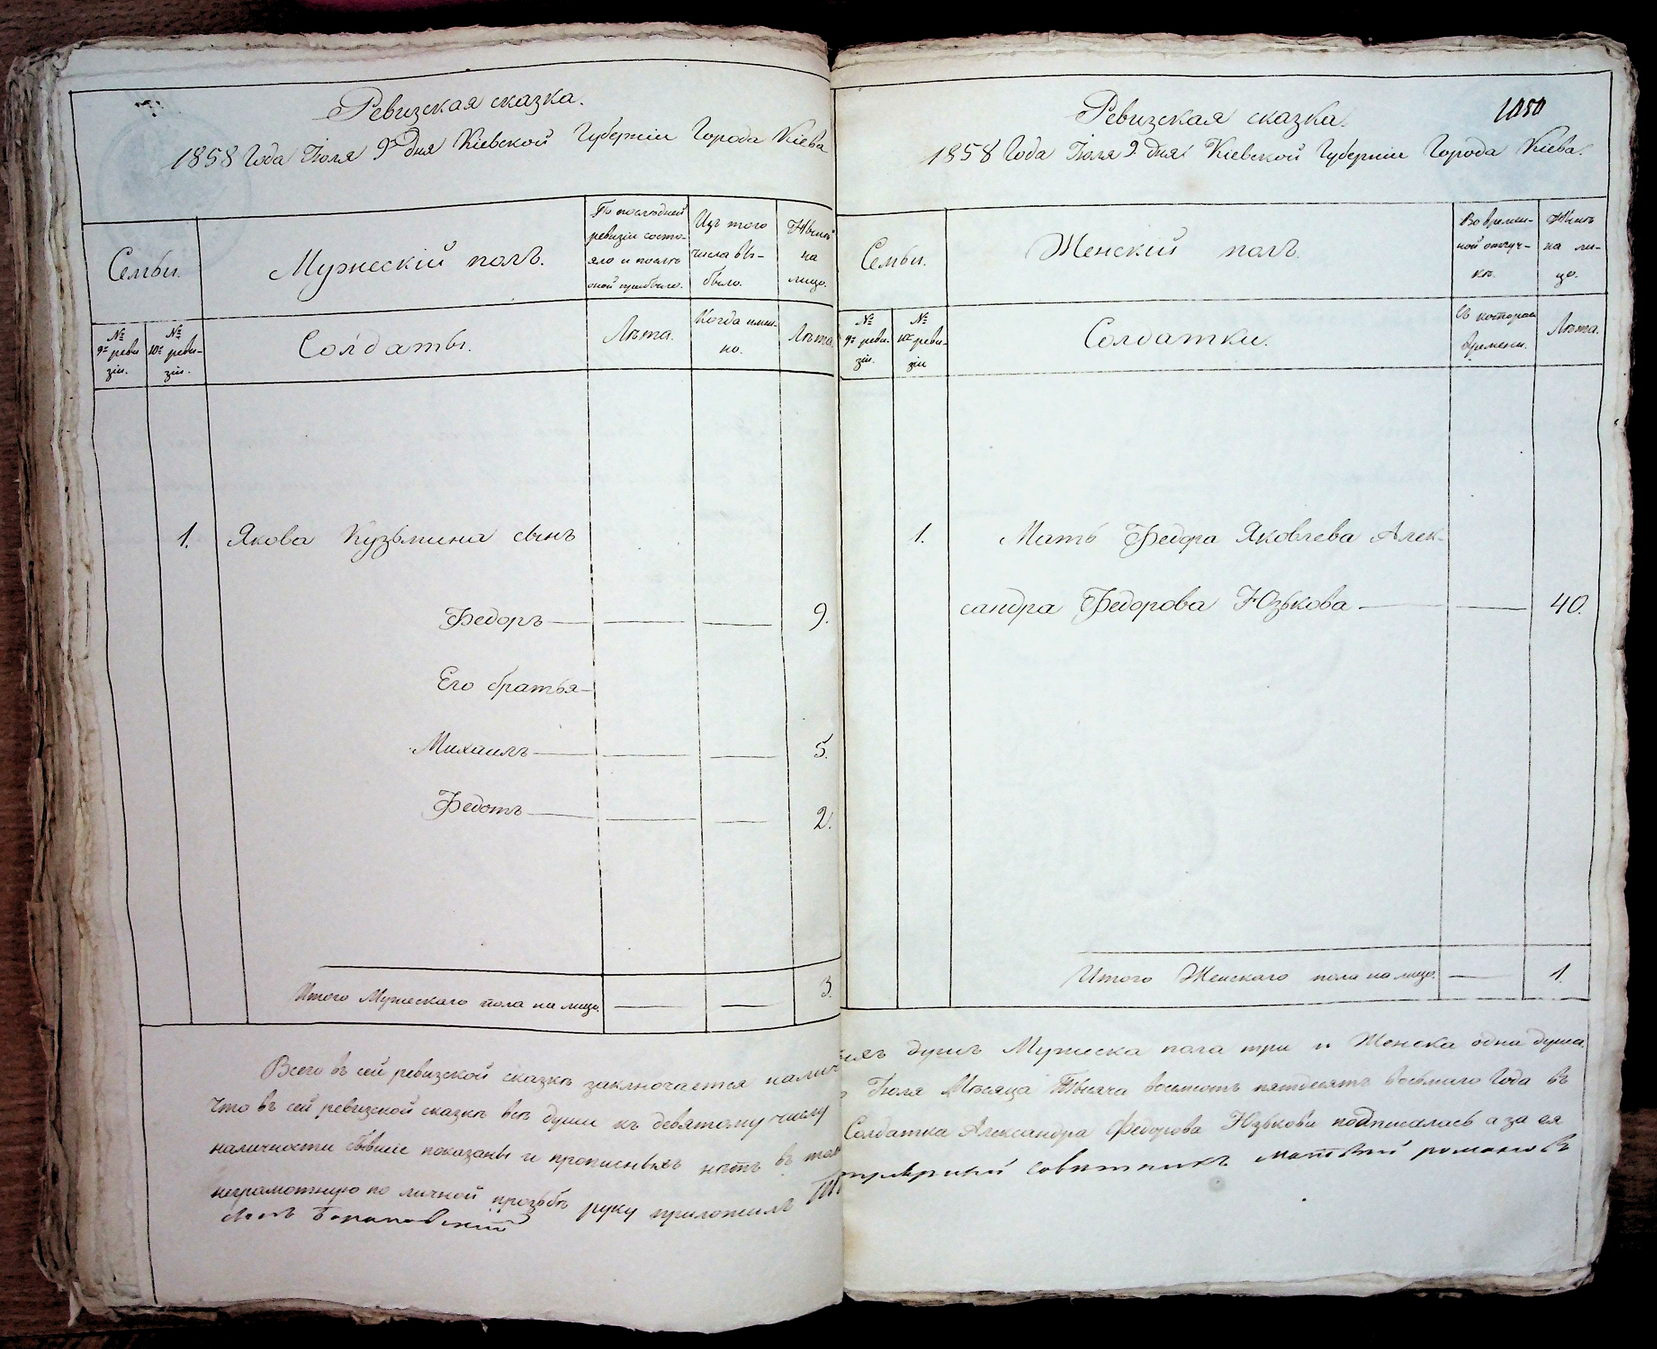 Ревизская сказка.
1858 Года Іюля 9го дня Кіевской Губерніи Города Кіева
Семьи.
Мужескій полъ.
По последней
ревизіи состо-
яло и послѣ
оной прибыло.
Изъ того
числа вы-
было.
Нынѣ
на
лицо.
№
9й реви
зіи.
№
10й реви-
зіи.
Солдаты.
Лѣта.
Когда имен-
но.
Лѣта.
1. Якова Кузьмина сынъ
Федоръ 9.
Его братья
Михаилъ 5.
Федотъ 2.
Итого Мужескаго пола на лицо. 3.
Всего въ сей ревизской сказкѣ заключается налич
что въ сей ревизской сказкѣ все души къ девятому числу
наличности бывшіе показаны и прописныхъ нетъ въ том
неграмотную по личной прозьбѣ руку приложилъ
1050
Ревизская сказка.
1858 Года Іюля 9. дня Кіевской Губерніи Города Кіева.
Семьи.
Женскій полъ.
Во времен-
ной отлуч-
кѣ.
Нынѣ
на ли-
цо.
№
9й реви-
зіи.
№
10й реви-
зіи
Солдатки.
Съ котораго
времени.
Лѣта.
1. Мать Федора Яковлева Алек-
сандра Федорова Юзькова 40.
Итого Женскаго пола на лицо. 1.
душъ Мужеска пола три и Женска одна душа
Іюля Мѣсяца Тысяча восемсотъ пятдесятъ восьмаго Года въ
Солдатка Александра Федорова Юзькова подписалась а за ея
совѣтникъ